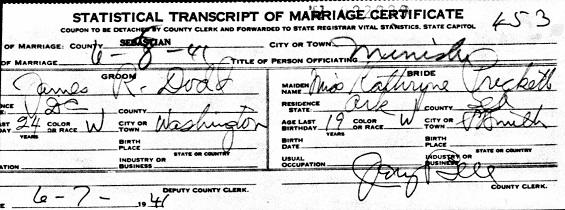 STATISTICAL TRANSCRIPT OF MARRIAGE CERTIFICATE
COUPON TO BE DETACHED BY COUNTY CLERK AND FORWARDED TO STATE REGISTRAR VITAL STATISTICS, STATE CAPITOL
453
OF MARRIAGE: COUNTY SEBASTIAN CITY OR TOWN
OF MARRIAGE 6-8-41 TITLE OF PERSON OFFICIATING Minister
GROOM BRIDE
James R. Dodd MAIDEN NAME Miss Kathryne Prickett
ENCE DC COUNTY RESIDENCE STATE Ark COUNTY Seb
LAST DAY 24 YEARS COLOR OR RACE W CITY OR TOWN Washington AGE LAST BIRTHDAY 19 YEARS COLOR OR RACE W CITY OR TOWN Ft Smith
BIRTH PLACE STATE OR COUNTRY BIRTH DATE BIRTH PLACE STATE OR COUNTRY
ATION INDUSTRY OR BUSINESS USUAL OCCUPATION INDUSTRY OR BUSINESS
DEPUTY COUNTY CLERK. COUNTY CLERK.
E 6-7- 1941